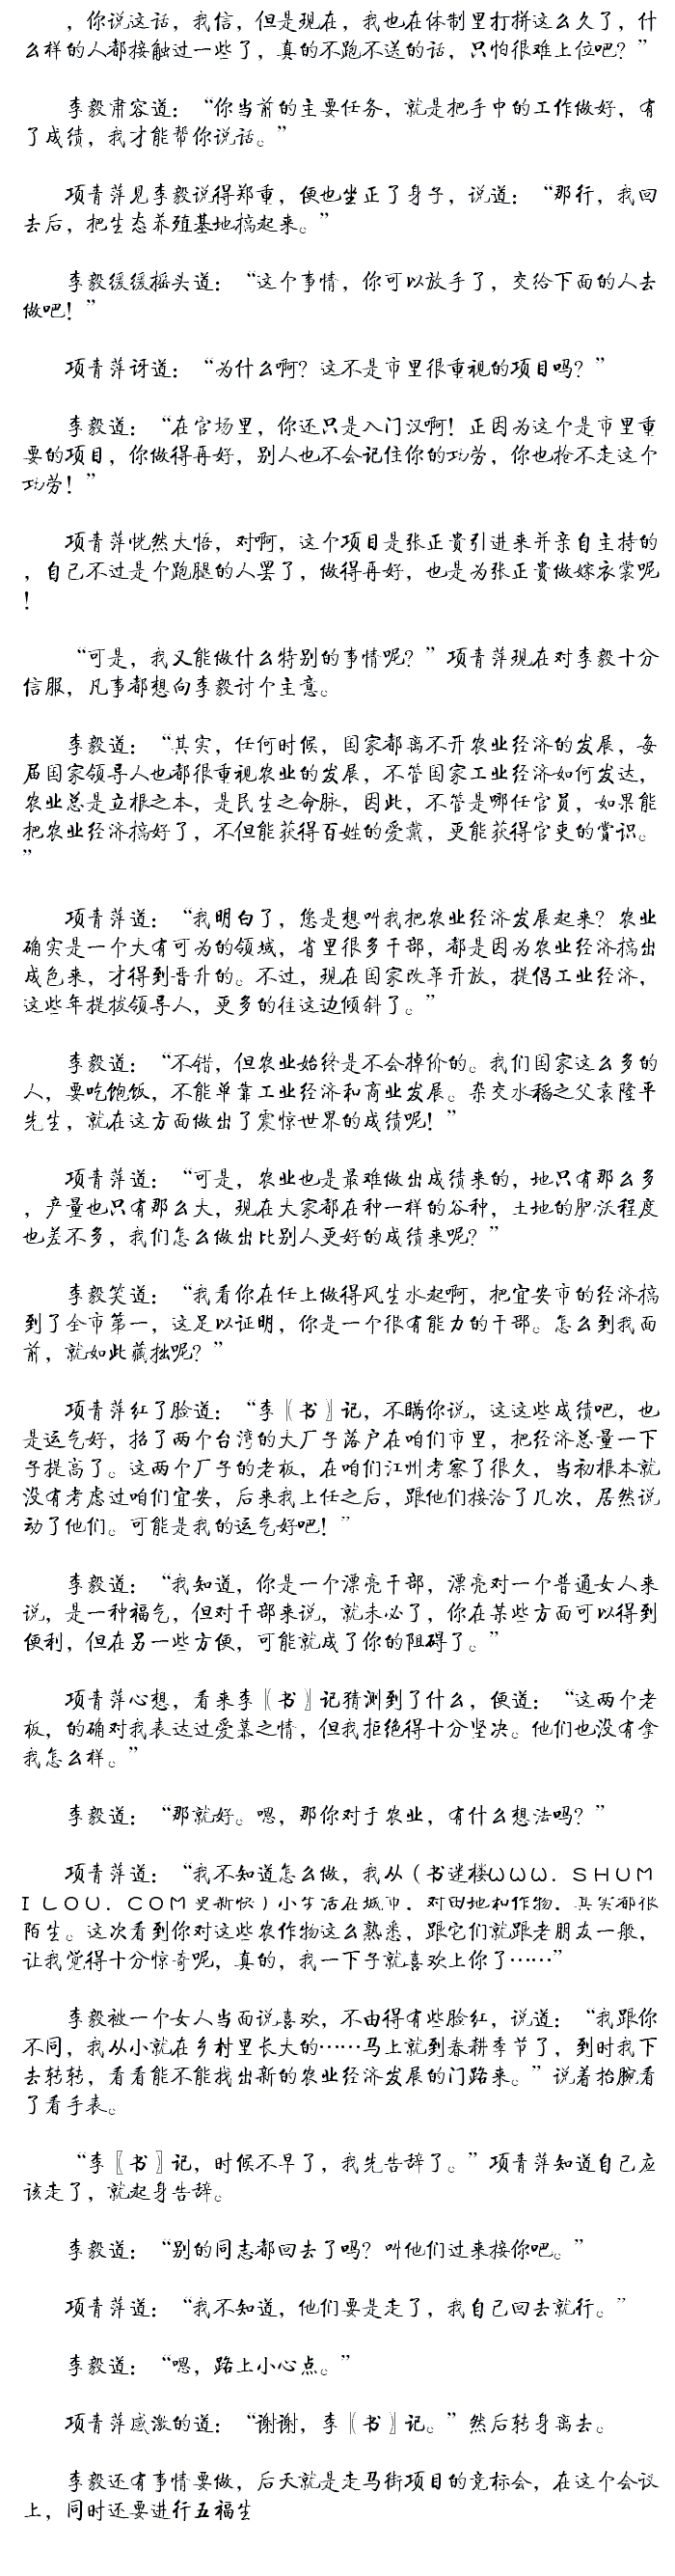 ，你说这话，我信，但是现在，我也在体制里打拼这么久了，什
么样的人都接触过一些了，真的不跑不送的话，只怕很难上位吧？”
李毅肃容道：“你当前的主要任务，就是把手中的工作做好，有
了成绩，我才能帮你说话。”
项青萍见李毅说得郑重，便也坐正了身子，说道：“那行，我回
去后，把生态养殖基地搞起来。”
李毅缓缓摇头道：“这个事情，你可以放手了，交给下面的人去
做吧！”
项青萍讶道：“为什么啊？这不是市里很重视的项目吗？”
李毅道：“在官场里，你还只是入门汉啊！正因为这个是市里重
要的项目，你做得再好，别人也不会记住你的功劳，你也抢不走这个
功劳！”
项青萍恍然大悟，对啊，这个项目是张正贵引进来并亲自主持的
，自己不过是个跑腿的人罢了，做得再好，也是为张正贵做嫁衣裳呢
！
“可是，我又能做什么特别的事情呢？”项青萍现在对李毅十分
信服，凡事都想向李毅讨个主意。
李毅道：“其实，任何时候，国家都离不开农业经济的发展，每
届国家领导人也都很重视农业的发展，不管国家工业经济如何发达，
农业总是立根之本，是民生之命脉，因此，不管是哪任官员，如果能
把农业经济搞好了，不但能获得百姓的爱戴，更能获得官吏的赏识。
”
项青萍道：“我明白了，您是想叫我把农业经济发展起来？农业
确实是一个大有可为的领域，省里很多干部，都是因为农业经济搞出
成色来，才得到晋升的。不过，现在国家改革开放，提倡工业经济，
这些年提拔领导人，更多的往这边倾斜了。”
李毅道：“不错，但农业始终是不会掉价的。我们国家这么多的
人，要吃饱饭，不能单靠工业经济和商业发展。杂交水稻之父袁隆平
先生，就在这方面做出了震惊世界的成绩呢！”
项青萍道：“可是，农业也是最难做出成绩来的，地只有那么多
，产量也只有那么大，现在大家都在种一样的谷种，土地的肥沃程度
也差不多，我们怎么做出比别人更好的成绩来呢？”
李毅笑道：“我看你在任上做得风生水起啊，把宜安市的经济搞
到了全市第一，这足以证明，你是一个很有能力的干部。怎么到我面
前，就如此藏拙呢？”
项青萍红了脸道：“李〖书〗记，不瞒你说，这这些成绩吧，也
是运气好，招了两个台湾的大厂子落户在咱们市里，把经济总量一下
子提高了。这两个厂子的老板，在咱们江州考察了很久，当初根本就
没有考虑过咱们宜安，后来我上任之后，跟他们接洽了几次，居然说
动了他们。可能是我的运气好吧！”
李毅道：“我知道，你是一个漂亮干部，漂亮对一个普通女人来
说，是一种福气，但对干部来说，就未必了，你在某些方面可以得到
便利，但在另一些方便，可能就成了你的阻碍了。”
项青萍心想，看来李〖书〗记猜测到了什么，便道：“这两个老
板，的确对我表达过爱慕之情，但我拒绝得十分坚决。他们也没有拿
我怎么样。”
李毅道：“那就好。嗯，那你对于农业，有什么想法吗？”
项青萍道：“我不知道怎么做，我从（书迷楼ＷＷＷ．ＳＨＵＭ
ＩＬＯＵ．ＣＯＭ更新快）小生活在城市，对田地和作物，其实都很
陌生。这次看到你对这些农作物这么熟悉，跟它们就跟老朋友一般，
让我觉得十分惊奇呢，真的，我一下子就喜欢上你了……”
李毅被一个女人当面说喜欢，不由得有些脸红，说道：“我跟你
不同，我从小就在乡村里长大的……马上就到春耕季节了，到时我下
去转转，看看能不能找出新的农业经济发展的门路来。”说着抬腕看
了看手表。
“李〖书〗记，时候不早了，我先告辞了。”项青萍知道自己应
该走了，就起身告辞。
李毅道：“别的同志都回去了吗？叫他们过来接你吧。”
项青萍道：“我不知道，他们要是走了，我自己回去就行。”
李毅道：“嗯，路上小心点。”
项青萍感激的道：“谢谢，李〖书〗记。”然后转身离去。
李毅还有事情要做，后天就是走马街项目的竞标会，在这个会议
上，同时还要进行五福生